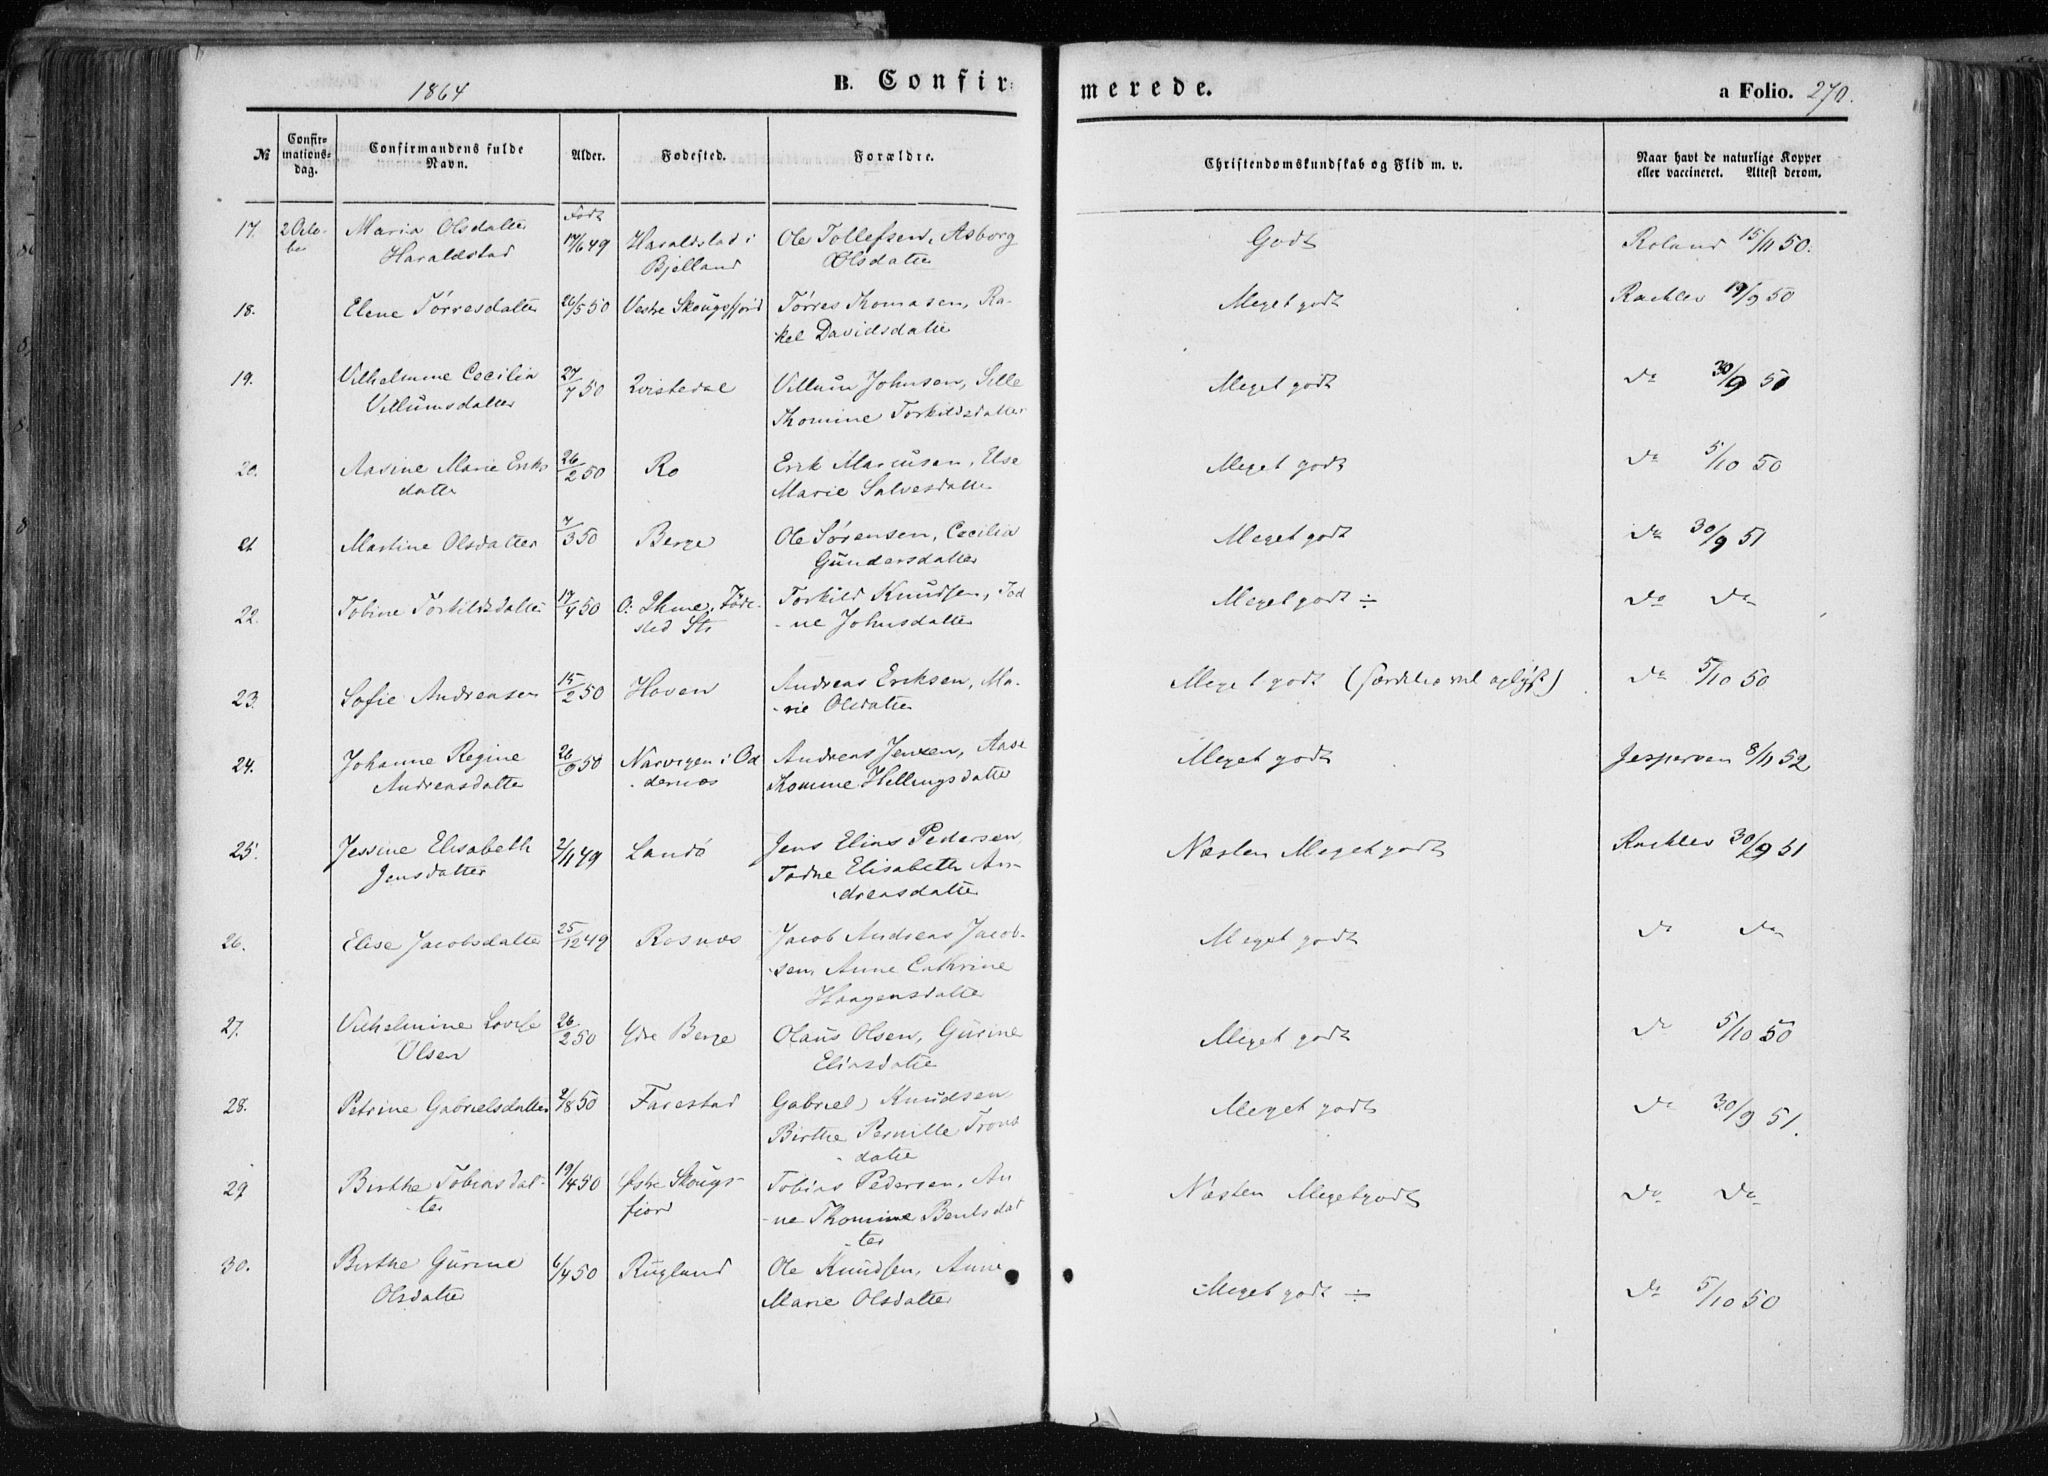 1864
B. Confir:
merede.
a Folio. 270.
№
Confir-
mations-
dag.
Confirmandens fulde
Navn.
Alder.
Fodested.
Forældre.
Christendomskundskab og Flid m. v.
Naar havt de naturlige Kopper
eller vaccineret. Attest derom.
17. 2 Octo-
ber
Maria Olsdatter
Haraldstad
Født
17/6 49
Haraldstad i
Bjelland
Ole Tollefsen, Asborg
Olsdatter
Godt
Roland 15/11 50.
18. Elene Tørresdatter 26/5 50 Vestre Skougsfjord Tørres Thomasen, Ra-
kel Davidsdatter
Meget godt
Rachlev 19/9 50
19. Vilhelmine Cecilia
Villumsdatter
27/7 50 Qvistedal Villum Johnsen, Sille
Thomine Torkildsdatter
Meget godt
Do 30/9 50
20. Aasine Marie Eriks
datter
26/2 50 Ro Erik Marcusen, Else
Marie Salvesdatter
Meget godt
Do 5/10 50
21. Martine Olsdatter 7/3 50 Berge Ole Sørensen, Cecilia
Gundersdatter
Meget godt
Do 30/9 51
22. Tobine Torkildsdatter 17/4 50 O: Ihme, Føde-
sted
Torkild Knudsen, Tod
-ne Johnsdatter
Meget godt ÷
Do Do
23. Sofie Andreasen 15/2 50 Hoven Andreas Eriksen, Ma-
-rie Olsdatter
Meget godt
Do 5/10 50
24. Johanne Regine
Andreasdatter
26/9 50 Narvigen i Od
dernæs
Andreas Jensen, Aase
Helling​sdatter
Meget godt
Jespersen 8/11 52
25. Jessine Elisabeth
Jensdatter
2/11 49 Landø Jens Elias Pedersen,
Todne Elisabeth An-
dreasdatter
Næsten Meget godt
Rachlev 30/9 51
26. Elise Jacobsdatter 25/12 49 Rosnæs Jacob Andreas Jacob-
sen, Anne Cathrine
Haagensdatter
Meget godt
Do Do
27. Vilhelmine Lovise
Olsen
26/2 50 Ydre Berge Olaus Olsen, Gurine
Eliasdatter
Meget godt
Do 5/10 50
28. Petrine Gabrielsdatter 2/8 50 Farestad Gabriel Knudsen
Birthe Pernille Trons
-datter
Meget godt
Do 30/9 51.
29 Birthe Tobiasdat-
-ter
19/4 50 Østre Skougs-
fjord
Tobias Pedersen, An
-ne Thomine Bentsdat
-ter
Næsten Meget godt
Do Do
30. Birthe Gurine
Olsdatter
6/4 50 Rugland Ole Knudsen, Anne
Marie Olsdatter
Meget godt ÷
Do 5/10 50